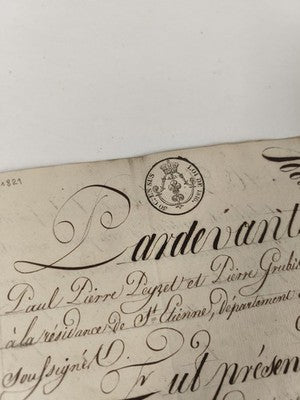 1829
Pardevant
Paul Pierre Peyret et Pierre Grubis
à la résidence de St. Etienne, Département
soussigné.
Fut présen